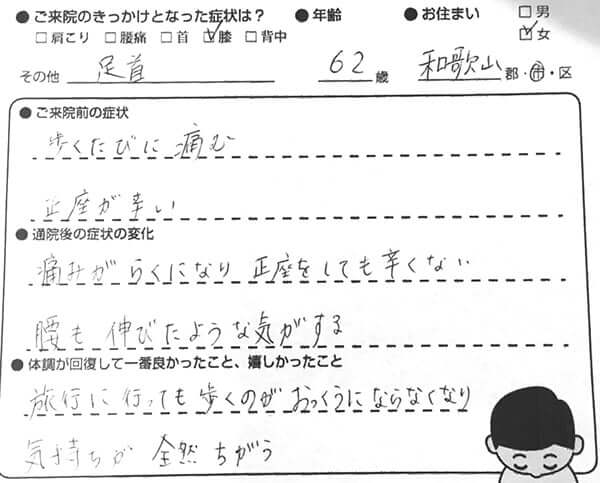 ●ご来院のきっかけとなった症状は？ ●年齢 ●お住まい □男
□肩こり □腰痛 □首 ☑膝 □背中 ☑女
その他 足首 62歳 和歌山 郡・市・区
●ご来院前の症状
歩くたびに痛む
正座が辛い
●通院後の症状の変化
痛みがらくになり 正座をしても辛くない
腰も伸びたような気がする
●体調が回復して一番良かったこと、嬉しかったこと
旅行に行っても歩くのがおっくうにならなくなり
気持ちが全然ちがう